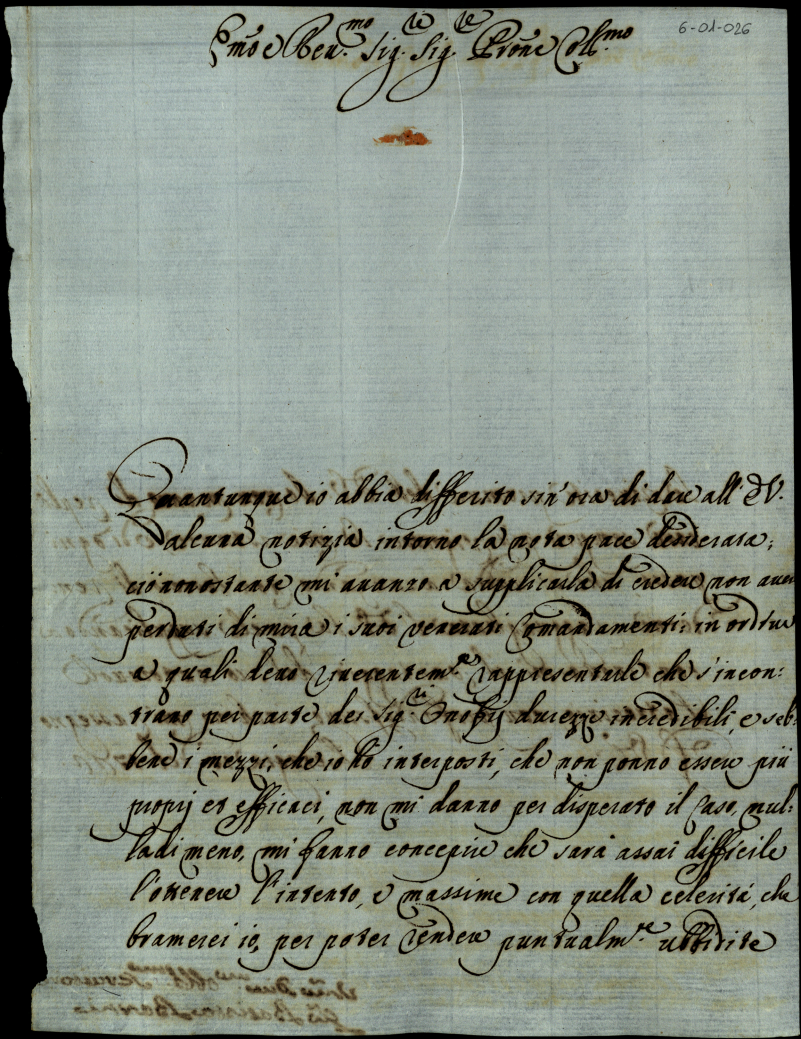 6-01-026
Emõ e Reu.mo Sig.re Sig.re Prõne Coll.mo
Quantunque io abbia differito sin'ora di dare all'E.V.
alcuna notizia intorno la nota pace desiderata;
ciò nonostante mi auanzo a supplicarla di credere non auer
perduti di mira i suoi venerati Comandamenti; in ordine
a quali deuo riuerentem.te rappresentarle che s'incon:
trano per parte dei Sig.ri Onofrij durezze incredibili, e seb:
bene i mezzi, che io hò interposti, che non ponno essere più
proprij et efficaci, non mi danno per disperato il Caso, nul:
ladimeno, mi fanno concepire che sarà assai difficile
l'ottenere l'intento, e massime con quella celerità, che
bramerei io, per poter rendere puntualm.te ubbidite